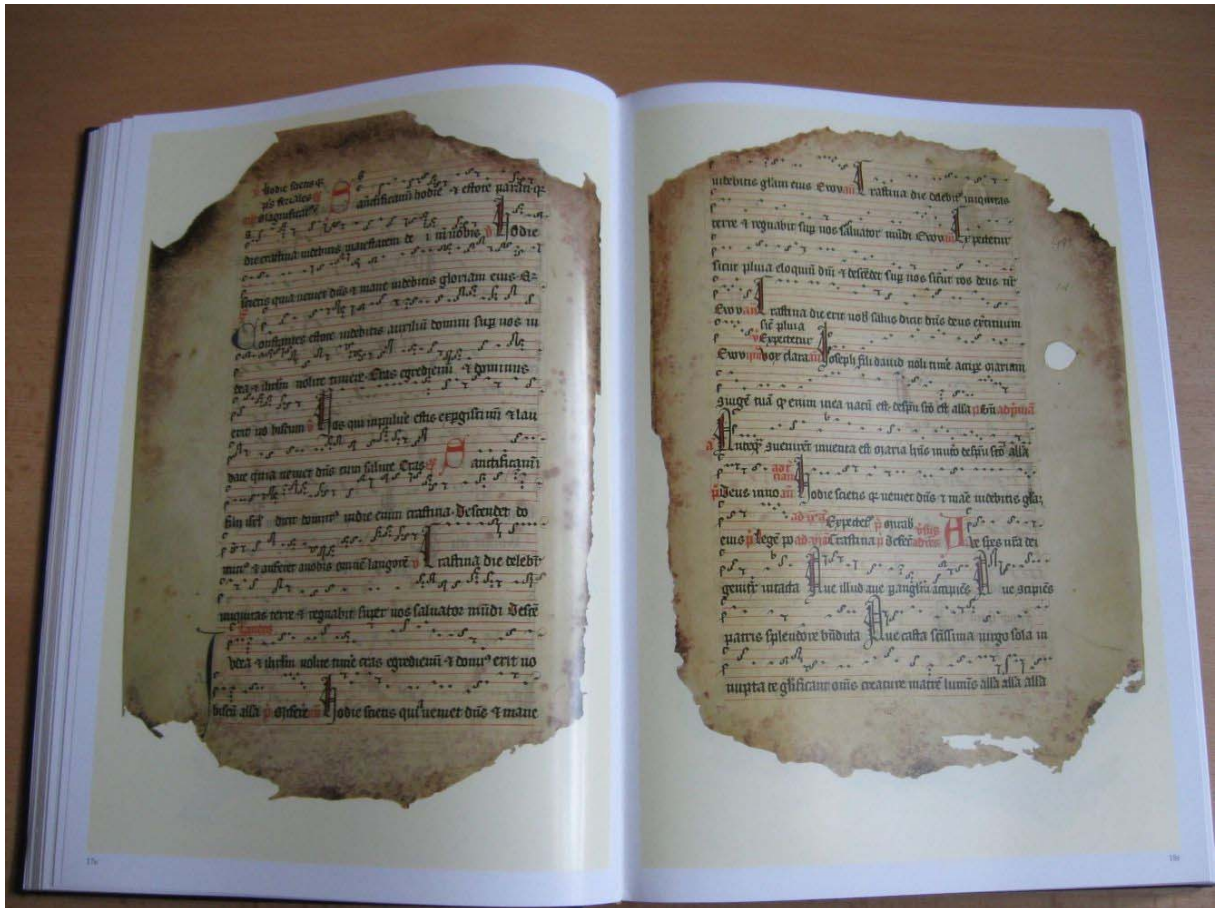 hodie scietis q
p̄s feriales
magnificat S anctificamī hodie ⁊ estote parati q
die crastina videbitis maiestatem dei in nobis v̄ Hodie
scietis quia veniet dn̄s ⁊ mane videbitis gloriam eius
Constantes estote videbitis auxiliū domini sup vos iu
dea ⁊ ihrlm nolite timere Cras egredieminī ⁊ dominus
erit vo biscum v̄ Vos qui in pulvere estis expgiscimī ⁊ lau
date quia veniet dn̄s cum salute Cras v̄ S anctificamī
filii isrl dicit dominꝰ die enim crastina Descendet do
minꝰ ⁊ auferet a vobis omnē langorē v̄ Crastina die delebit
iniquitas terre ⁊ regnabit super vos salvator mūdi Descē
Iudea ⁊ ihrlm nolite timē cras egredieminī ⁊ dominꝰ erit vo
biscū alla Hodie scietis quia veniet dn̄s ⁊ mane
17v
videbitis glam eius Evovae Crastina die delebit iniquitas
terre ⁊ regnabit sup nos salvator mūdi Evovae Expectetur
sicut pluvia eloquiū dn̄i ⁊ descēdet sup nos sicut ros deus nr̄
Evovae Crastina die erit vob salus dicit dn̄s deus exercituum
sic pluvia
Expectetur
Evovae vox clara Ioseph fili david noli timē accipe mariam
iugē tuā q enim in ea natū est de spū sco est alla ad p̄mā
Anteq̄ cōvenirēt inventa est maria hn̄s in utō de spū scō alla
ad t
tiam
Deus in no Hodie scietis q veniet dn̄s ⁊ mane videbitis glā
ad viā Expectet
eius legē po Crastina defec Ave spes nr̄a dei
genitrix intacta Ave illud ave p anglm accipiēs Ave cōcipiēs
patris splendore bn̄dicta Ave casta scissima virgo sola in
nupta te glificant omīs creature matrē luminis alla alla alla
18r